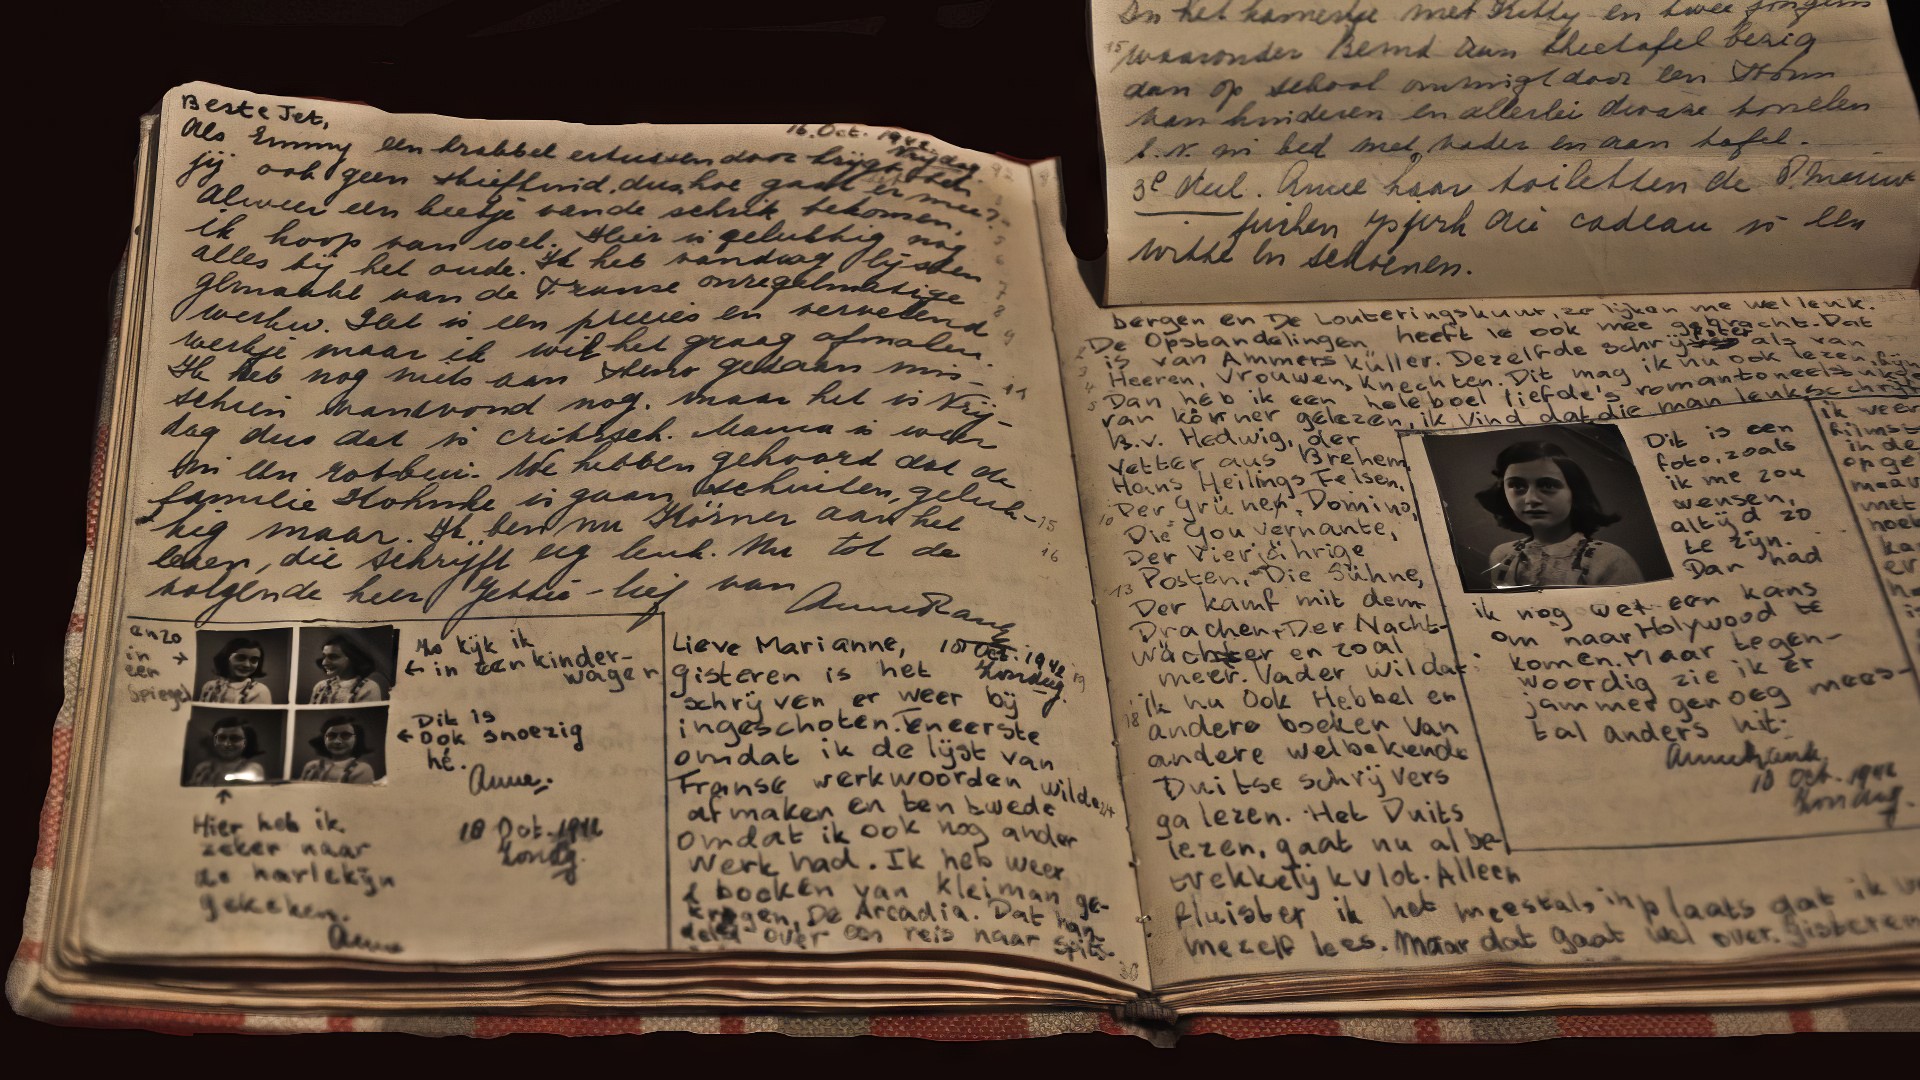 Beste Jet,
16. Oct. 1942.
Vrijdag.
Als Emmy een krabbel ertussendoor krijgt heb
jij ook geen stiefkind, dus hoe gaat er mee?
Alweer een beetje van de schrik bekomen,
ik hoop van wel. Hier is gelukkig nog
alles bij het oude. Ik heb vandaag lijsten
gemaakt van de Franse onregelmatige
werkw. Het is een precies en vervelend
werkje maar ik wil het graag afmaken.
Ik heb nog niets aan steno gedaan mis-
schien vanavond nog. maar het is Vrij-
dag dus dat is critisch. Mama is weer
in een rotbui. We hebben gehoord dat de
familie is gaan schuilen, geluk-
kig maar. Ik ben nu Körner aan het
lezen, die schrijft erg leuk. Nu tot de
volgende keer Jettie-lief van
Anne Frank
enzo
in
een
spiegel
Nu kijk ik
in een kinder-
wagen
Dit is
ook snoezig
hé.
Anne.
Hier heb ik
zeker naar
de harlekijn
gekeken.
Anne
18 Oct. 1942
Zondag.
Lieve Marianne,
18 Oct. 1942
Zondag.
gisteren is het
schrijven er weer bij
ingeschoten. Ten eerste
omdat ik de lijst van
Franse werkwoorden wilde
afmaken en ten twede
omdat ik ook nog ander
werk had. Ik heb weer
2 boeken van Kleiman ge-
kregen, De Arcadia. Dat han-
deld over een reis naar Spits-
In het kamertje met Kitty en twee jongens
waaronder Bernd aan theetafel bezig
dan op school omringt door een stroom
van kinderen en allerlei dwaze tonelen
b.v. in bed met vader en aan tafel.
3e deel. Anne haar toiletten de
die cadeau is een
witte en schoenen.
bergen en De Louteringskuur, ze lijken me wel leuk.
De Opstandelingen heeft ie ook mee gebracht. Dat
is van Ammers Küller. Dezelfde schrijfster als van
Heeren, Vrouwen, Knechten. Dit mag ik nu ook lezen, fijn
Dan heb ik een heleboel liefde's romantoneelstukjes
van körner gelezen, ik vind dat die man leuk schrijft
B.v. Hedwig, der
Vetter aus Brehem
Hans Heilings Felsen,
Der Grüner, Domino,
Die Gouvernante,
Der Vierjährige
Posten, Die Sühne,
Der kamf mit dem
Drachen, Der Nacht-
wächter en zoal
meer. Vader wil dat
ik nu ook Hebbel en
andere boeken van
andere welbekende
Duitse schrijvers
ga lezen. Het Duits
lezen, gaat nu al be-
trekkelijk vlot. Alleen
fluister ik het meestal, in plaats dat ik
mezelf lees. Maar dat gaat wel over. Gisteren
Dit is een
foto, zoals
ik me zou
wensen,
altijd zo
te zijn.
Dan had
ik nog wel een kans
om naar Holywood te
komen. Maar tegen-
woordig zie ik er
jammer genoeg mees-
tal anders uit.
Anne Frank
18 Oct. 1942
Zondag.
ik weer
filmst
in de
opge
maar
met